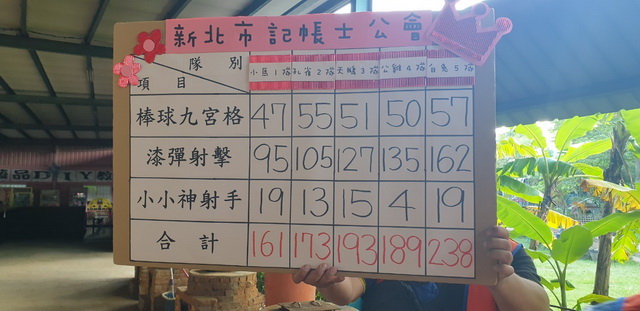 新北市記帳士公會
隊別
項目
1 2 3 公雞4 5
棒球九宮格 47 55 51 50 57
漆彈射擊 95 105 127 135 162
小小神射手 19 13 15 4 19
合計 161 173 193 189 238